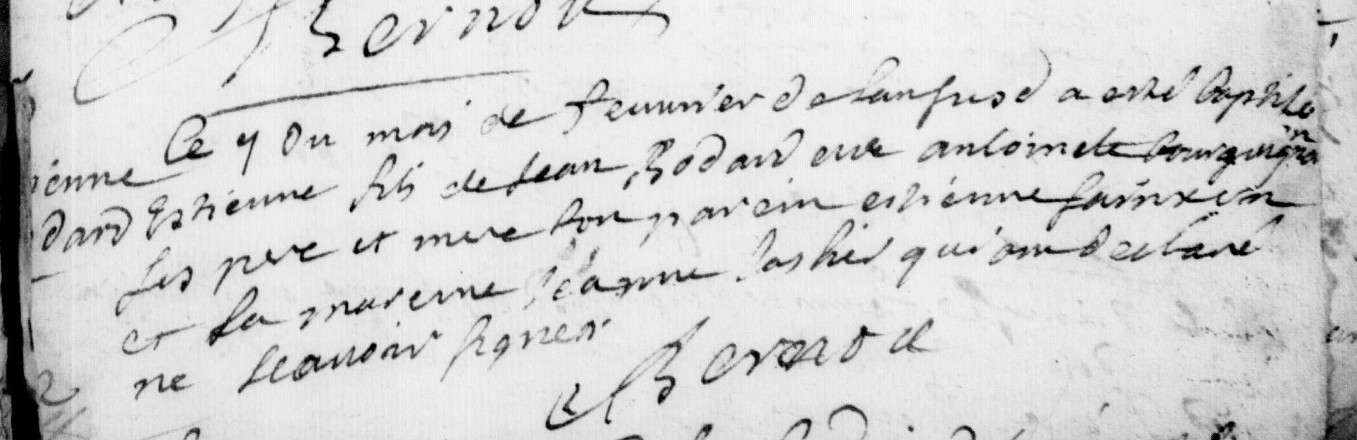 Bernode
Ce 7 du mois de feuurier de lan susd a esté baptisé
ienne Estienne fils de Jean Bodard et de antoinete bourguignon
dard ses pere et mere son parein estienne
et sa mareine Jeanne qui ont declaré
ne scauoir signer
Bernode